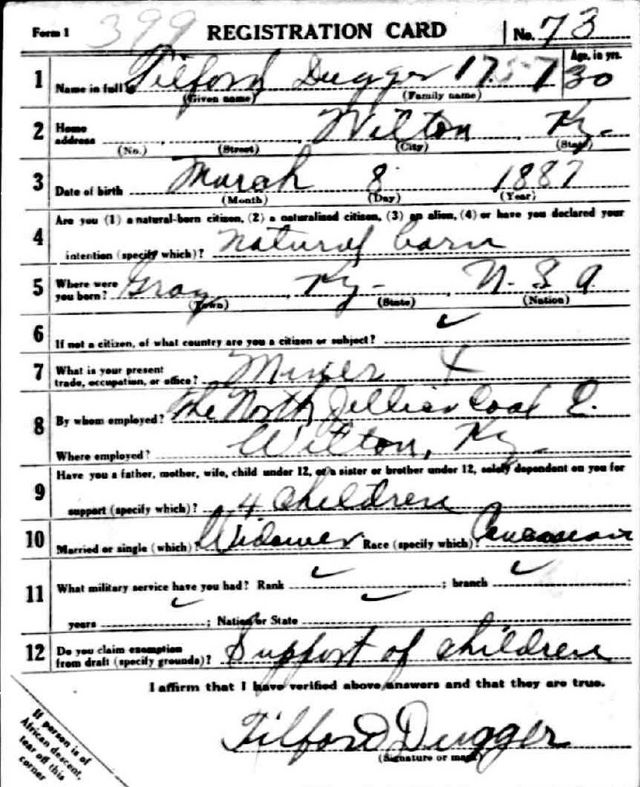 Form 1 399 REGISTRATION CARD No. 73
1 Name in full Tilford Dugger 1757 Age, in yrs. 30
(Given name) (Family name)
2 Home address Wilton, Ky-
(No.) (Street) (City) (State)
3 Date of birth March 8 1887
(Month) (Day) (Year)
Are you (1) a natural-born citizen, (2) a naturalized citizen, (3) an alien, (4) or have you declared your
4 intention (specify which)? natural born
5 Where were you born? Gray, Ky- U. S. A
(Town) (State) (Nation)
6 If not a citizen, of what country are you a citizen or subject? ✓
7 What is your present trade, occupation, or office? Miner
8 By whom employed? The North Jellico Coal C.
Where employed? Wilton, Ky-
Have you a father, mother, wife, child under 12, or a sister or brother under 12, solely dependent on you for
9 support (specify which)? 4 children
10 Married or single (which)? Widower Race (specify which)? Caucasian
11 What military service have you had? Rank ✓ ; branch ✓
years ✓ ; Nation or State ✓
12 Do you claim exemption from draft (specify grounds)? Support of children
I affirm that I have verified above answers and that they are true.
Tilford Dugger
(Signature or mark)
If person is of
African descent,
tear off this
corner